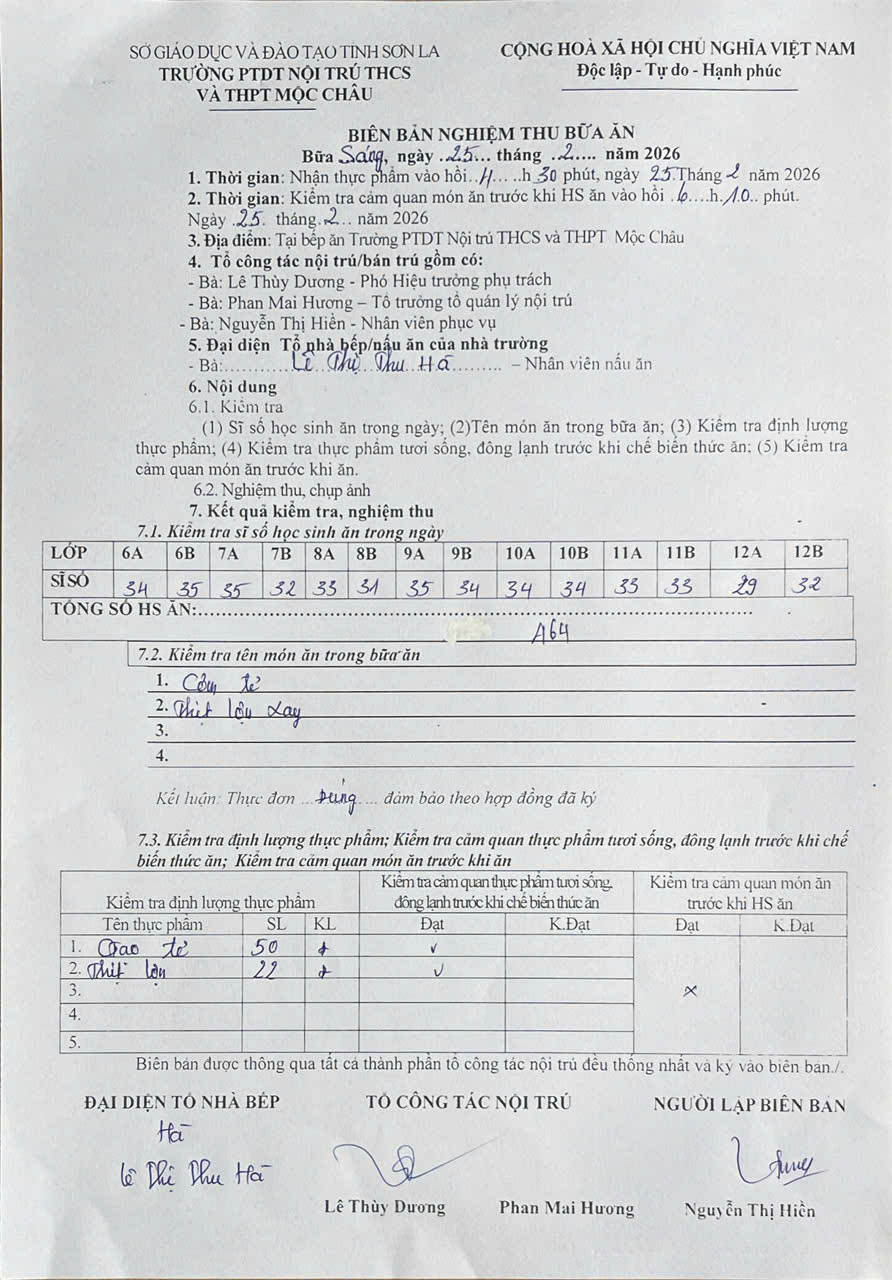 SỞ GIÁO DỤC VÀ ĐÀO TẠO TỈNH SƠN LA
TRƯỜNG PTDT NỘI TRÚ THCS
VÀ THPT MỘC CHÂU
CỘNG HOÀ XÃ HỘI CHỦ NGHĨA VIỆT NAM
Độc lập - Tự do - Hạnh phúc
BIÊN BẢN NGHIỆM THU BỮA ĂN
Bữa Sáng, ngày ..25... tháng ..2.... năm 2026
1. Thời gian: Nhận thực phẩm vào hồi..4.....h 30 phút, ngày 25.Tháng 2 năm 2026
2. Thời gian: Kiểm tra cảm quan món ăn trước khi HS ăn vào hồi .6....h.10.. phút.
Ngày .25. tháng.2... năm 2026
3. Địa điểm: Tại bếp ăn Trường PTDT Nội trú THCS và THPT Mộc Châu
4. Tổ công tác nội trú/bán trú gồm có:
- Bà: Lê Thùy Dương - Phó Hiệu trưởng phụ trách
- Bà: Phan Mai Hương – Tổ trưởng tổ quản lý nội trú
- Bà: Nguyễn Thị Hiền - Nhân viên phục vụ
5. Đại diện Tổ nhà bếp/nấu ăn của nhà trường
- Bà:............Lê Thị Thu Hà......... – Nhân viên nấu ăn
6. Nội dung
6.1. Kiểm tra
(1) Sĩ số học sinh ăn trong ngày; (2)Tên món ăn trong bữa ăn; (3) Kiểm tra định lượng
thực phẩm; (4) Kiểm tra thực phẩm tươi sống, đông lạnh trước khi chế biến thức ăn; (5) Kiểm tra
cảm quan món ăn trước khi ăn.
6.2. Nghiệm thu, chụp ảnh
7. Kết quả kiểm tra, nghiệm thu
7.1. Kiểm tra sĩ số học sinh ăn trong ngày
LỚP 6A 6B 7A 7B 8A 8B 9A 9B 10A 10B 11A 11B 12A 12B
SĨ SỐ 34 35 35 32 33 31 35 34 34 34 33 33 29 32
TỔNG SỐ HS ĂN:...........................................................................
464
7.2. Kiểm tra tên món ăn trong bữa ăn
1. Cơm tẻ
2. Thịt lợn xay
3.
4.
Kết luận: Thực đơn ...Đúng.... đảm bảo theo hợp đồng đã ký
7.3. Kiểm tra định lượng thực phẩm; Kiểm tra cảm quan thực phẩm tươi sống, đông lạnh trước khi chế
biến thức ăn; Kiểm tra cảm quan món ăn trước khi ăn
Kiểm tra định lượng thực phẩm
Kiểm tra cảm quan thực phẩm tươi sống,
đông lạnh trước khi chế biến thức ăn
Kiểm tra cảm quan món ăn
trước khi HS ăn
Tên thực phẩm SL KL Đạt K.Đạt Đạt K.Đạt
1. Gạo tẻ 50 ✓
2. Thịt lợn 22 ✓
3. x
4.
5.
Biên bản được thông qua tất cả thành phần tổ công tác nội trú đều thống nhất và ký vào biên bản./.
ĐẠI DIỆN TỔ NHÀ BẾP TỔ CÔNG TÁC NỘI TRÚ NGƯỜI LẬP BIÊN BẢN
Hà
Lê Thị Thu Hà
Lê Thùy Dương Phan Mai Hương Nguyễn Thị Hiền